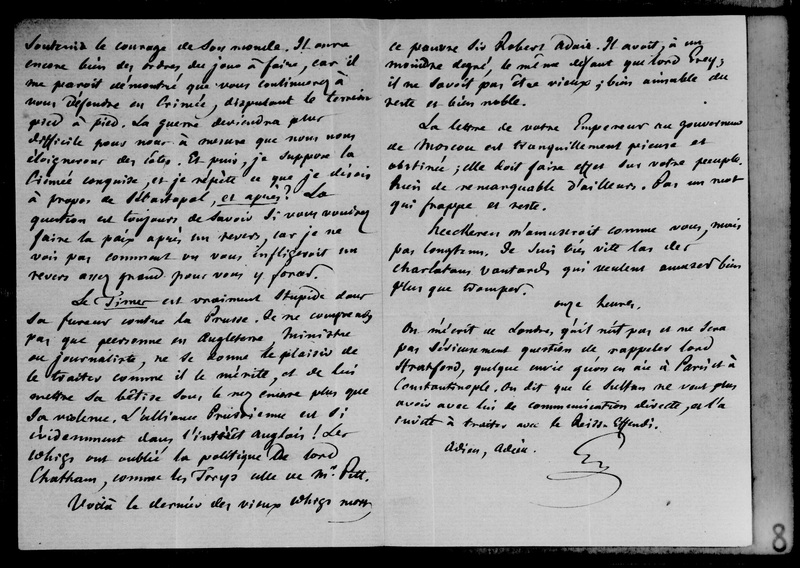 soutenir le courage de son monde. Il aura
encore bien des ordres du jour à faire, car il
me paroît démontré que vous continuerez à
vous défendre en Crimée, disputant le terrain
pied à pied. La guerre deviendra plus
difficile pour nous à mesure que nous nous
éloignerons des côtes. Et puis, je suppose la
Crimée conquise, et je répète ce que je disois
à propos de Sébastopol, et après? La
question est toujours de savoir si vous voudrez
faire la paix après un revers, car je ne
vois pas comment on vous infligeroit un
revers assez grand pour vous y forcer.
Le Times est vraiment stupide dans
sa fureur contre la Prusse. Je ne comprends
pas que personne en Angleterre, ministre
ou journaliste, ne se donne le plaisir de
le traiter comme il le mérite, et de lui
mettre sa bêtise sous le nez encore plus que
sa violence. L'alliance Prussienne est si
évidemment dans l'intérêt Anglais! Les
whigs ont oublié la politique de lord
Chatham, comme les Torys celle de Mr Pitt.
Voilà le dernier des vieux whigs mort,
ce pauvre Sir Robert Adair. Il avoit, à un
moindre degré, le même défaut que lord Grey;
il ne savoit pas être vieux; bien aimable du
reste et bien noble.
La lettre de votre Empereur au gouverneur
de Moscou est tranquillement pieuse et
obstinée; elle doit faire effet sur votre peuple.
Rien de remarquable d'ailleurs. Pas un mot
qui frappe et reste.
Heeckeren m'amuseroit comme vous, mais
pas longtems. Je suis très vite las des
charlatans vantards qui veulent amuser bien
plus que tromper.
onze heures.
On m'écrit de Londres, qu'il n'est pas et ne sera
pas sérieusement question de rappeler lord
Stratford, quelque envie qu'on en aie à Paris et à
Constantinople. On dit que le Sultan ne veut plus
avoir avec lui de communication directe, et l'a
invité à traiter avec le Reiss-Effendi.
Adieu, Adieu.
8